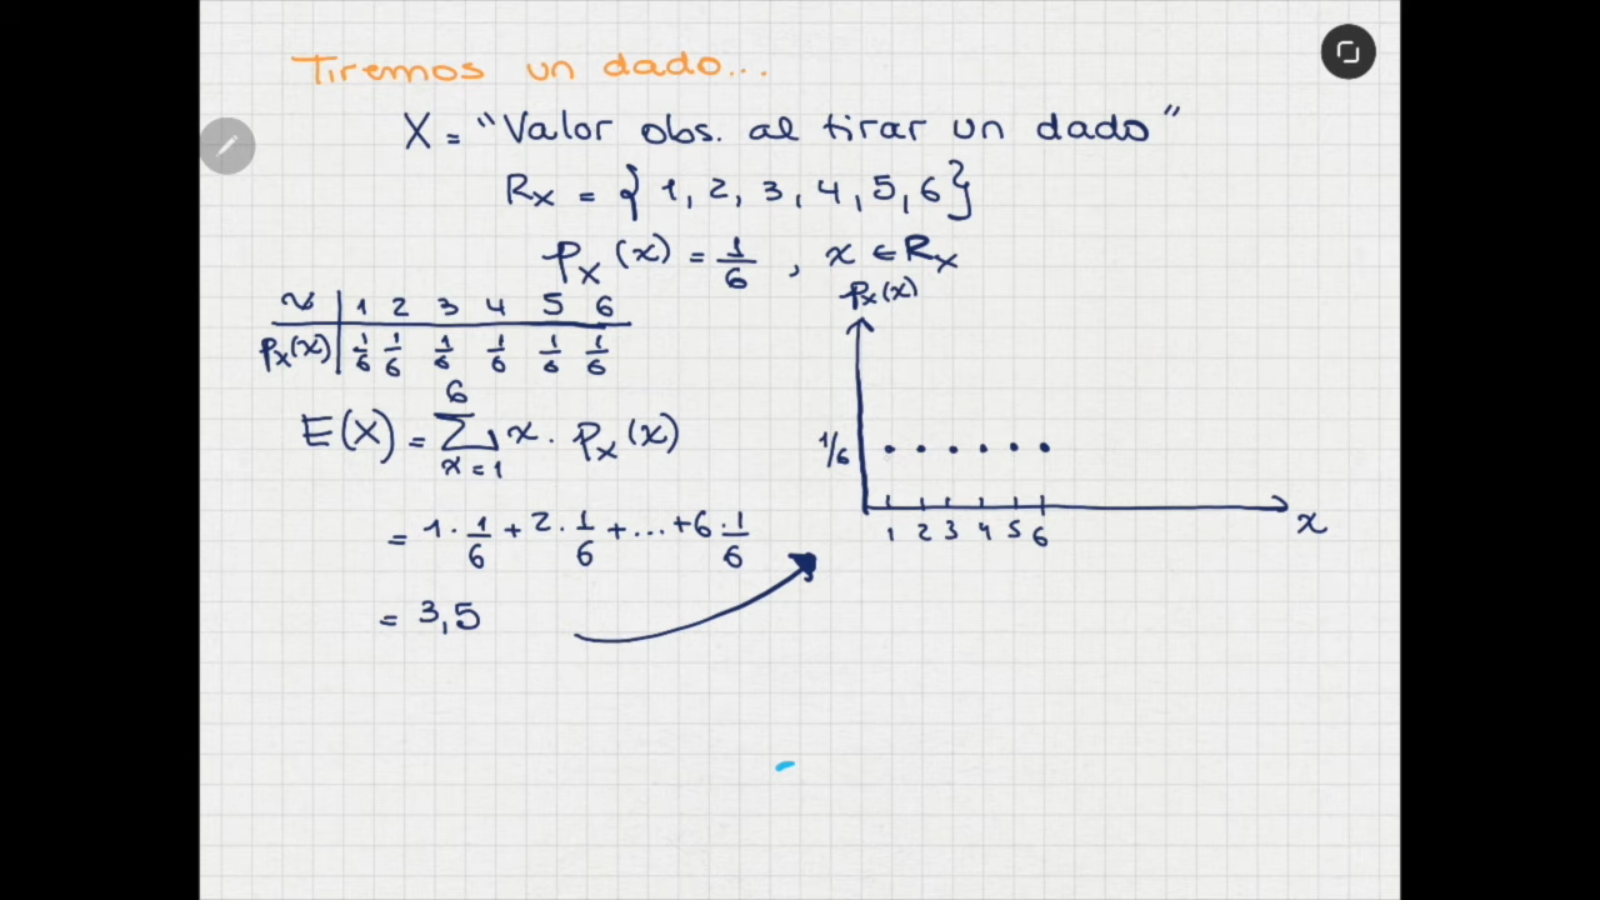 Tiremos un dado...
X = "Valor obs. al tirar un dado"
Rx = { 1, 2, 3, 4, 5, 6 }
Px (x) = 1/6 , x ∈ Rx
x | 1 2 3 4 5 6
Px(x) | 1/6 1/6 1/6 1/6 1/6 1/6
E(X) = ∑_{x=1}^{6} x · Px(x)
= 1 · 1/6 + 2 · 1/6 + ... + 6 · 1/6
= 3,5
Px(x)
1/6
1 2 3 4 5 6
x